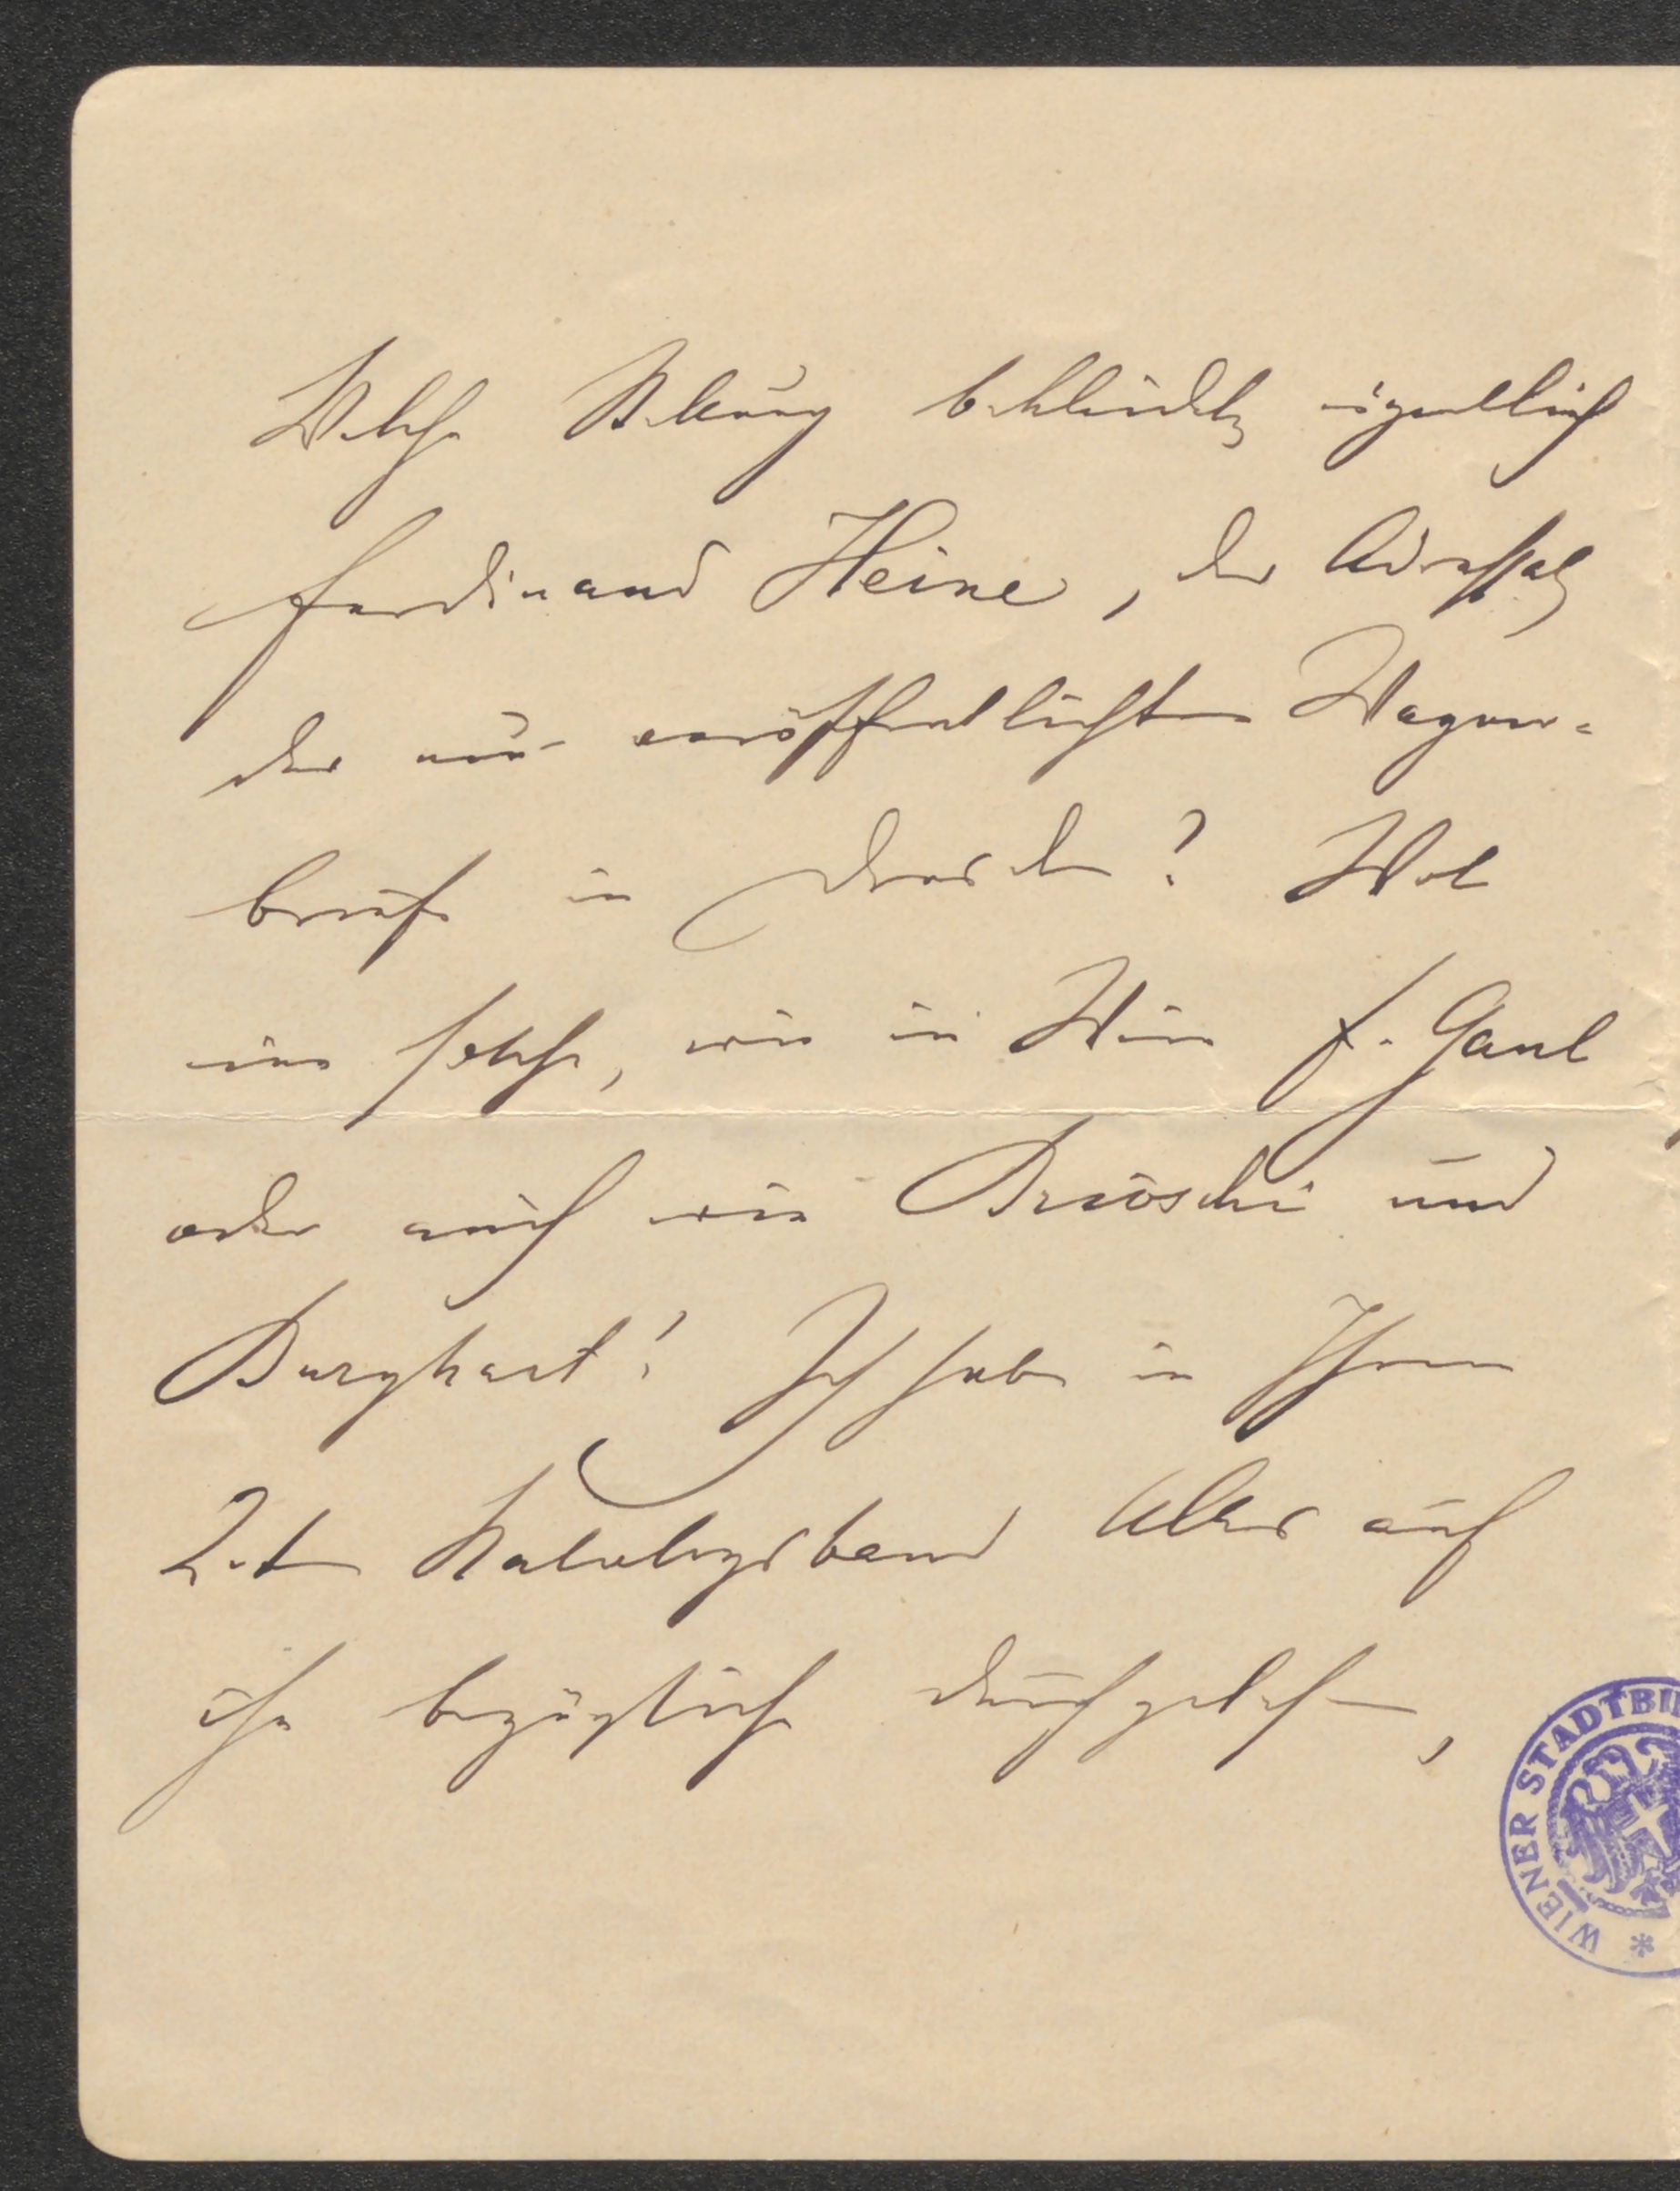 Welche Stellung bekleidete eigentlich
Ferdinand Heine, der Adressat
der neu veröffentlichten Wagner-
briefe in Dresden? Wol
eine solche, wie in Wien F. Gaul
oder auch wie Brioschi und
Burghart! Ich habe in Ihrem
2.ten Katalogsband Alles auf
ihn bezügliche durchgelesen,
WIENER STADTBI